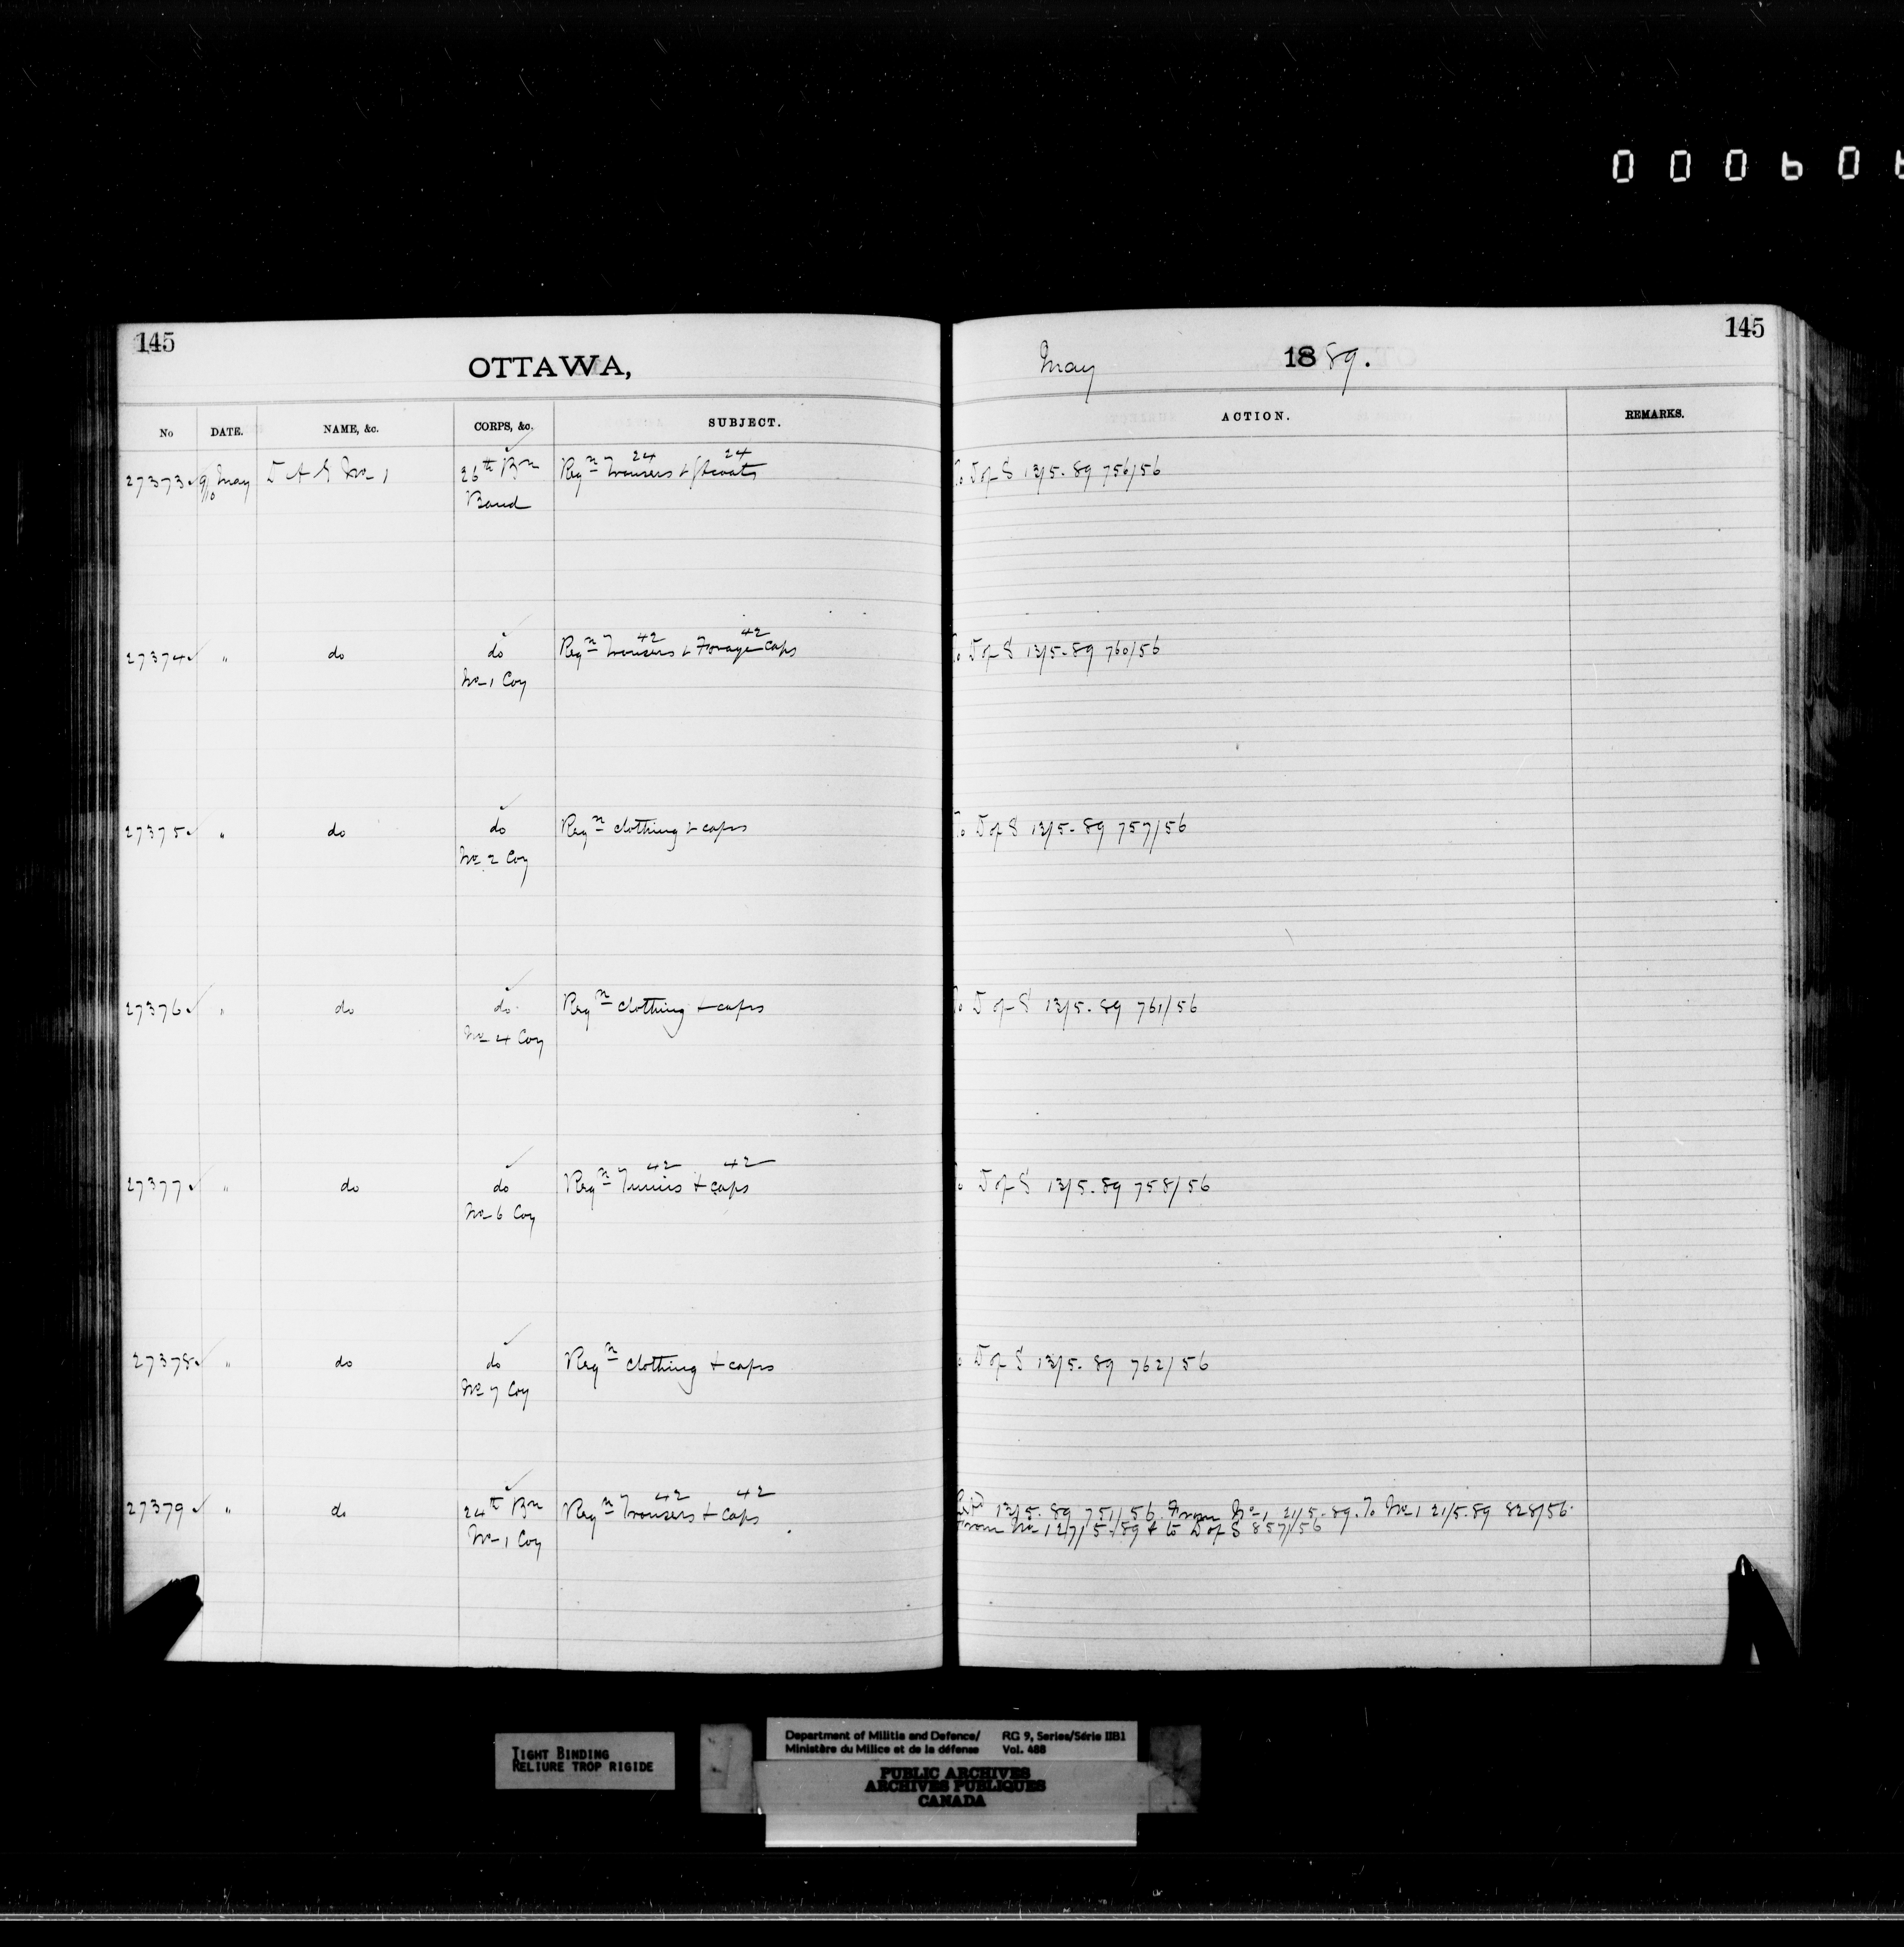 000606
145
OTTAWA,
May 1889.
145
No DATE. NAME, &c. CORPS, &c. SUBJECT. ACTION. REMARKS.
24 24
27373 9/10 May D A G No 1 26th Bn Reqn Trousers & Gtcoats To D of S 13/5-89 756/56
Band
42 42
27374 " do do Reqn Trousers & Forage Caps To D of S 13/5-89 760/56
No 1 Coy
27375 " do do Reqn Clothing & caps To D of S 13/5-89 757/56
No 2 Coy
27376 " do do Reqn Clothing & caps To D of S 13/5-89 761/56
No 4 Coy
42 42
27377 " do do Reqn Tunics & caps To D of S 13/5-89 758/56
No 6 Coy
27378 " do do Reqn Clothing & caps To D of S 13/5-89 762/56
No 7 Coy
42 42
27379 " do 24th Bn Reqn Trousers & Caps 13/5-89 751/56. From No 1 21/5-89. To No 1 21/5-89 828/56.
No 1 Coy From No 1 27/5-/89 & to D of S 857/56
TIGHT BINDING
RELIURE TROP RIGIDE
Department of Militia and Defence/ RG 9, Series/Série IIB1
Ministère du Milice et de la défense Vol. 488
PUBLIC ARCHIVES
ARCHIVES PUBLIQUES
CANADA